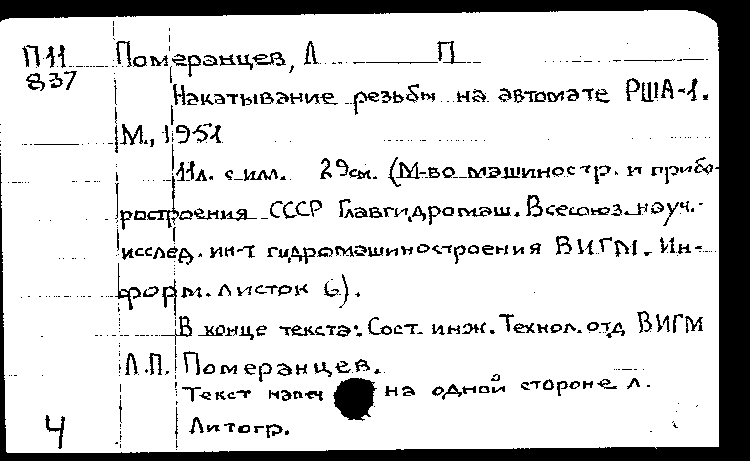 П11 Померанцев, Л П
837
Накатывание резьбы на автомате РША-1.
М., 1951
11л. с илл. 29см. (М-во машиностр. и прибо-
ростроения СССР Главгидромаш. Всесоюз. науч.-
исслед. ин-т гидромашиностроения ВИГМ. Ин-
форм. листок 6).
В конце текста: Сост. инж. Технол. отд ВИГМ
Л.П. Померанцев.
Текст напеч на одной стороне л.
Литогр.
4